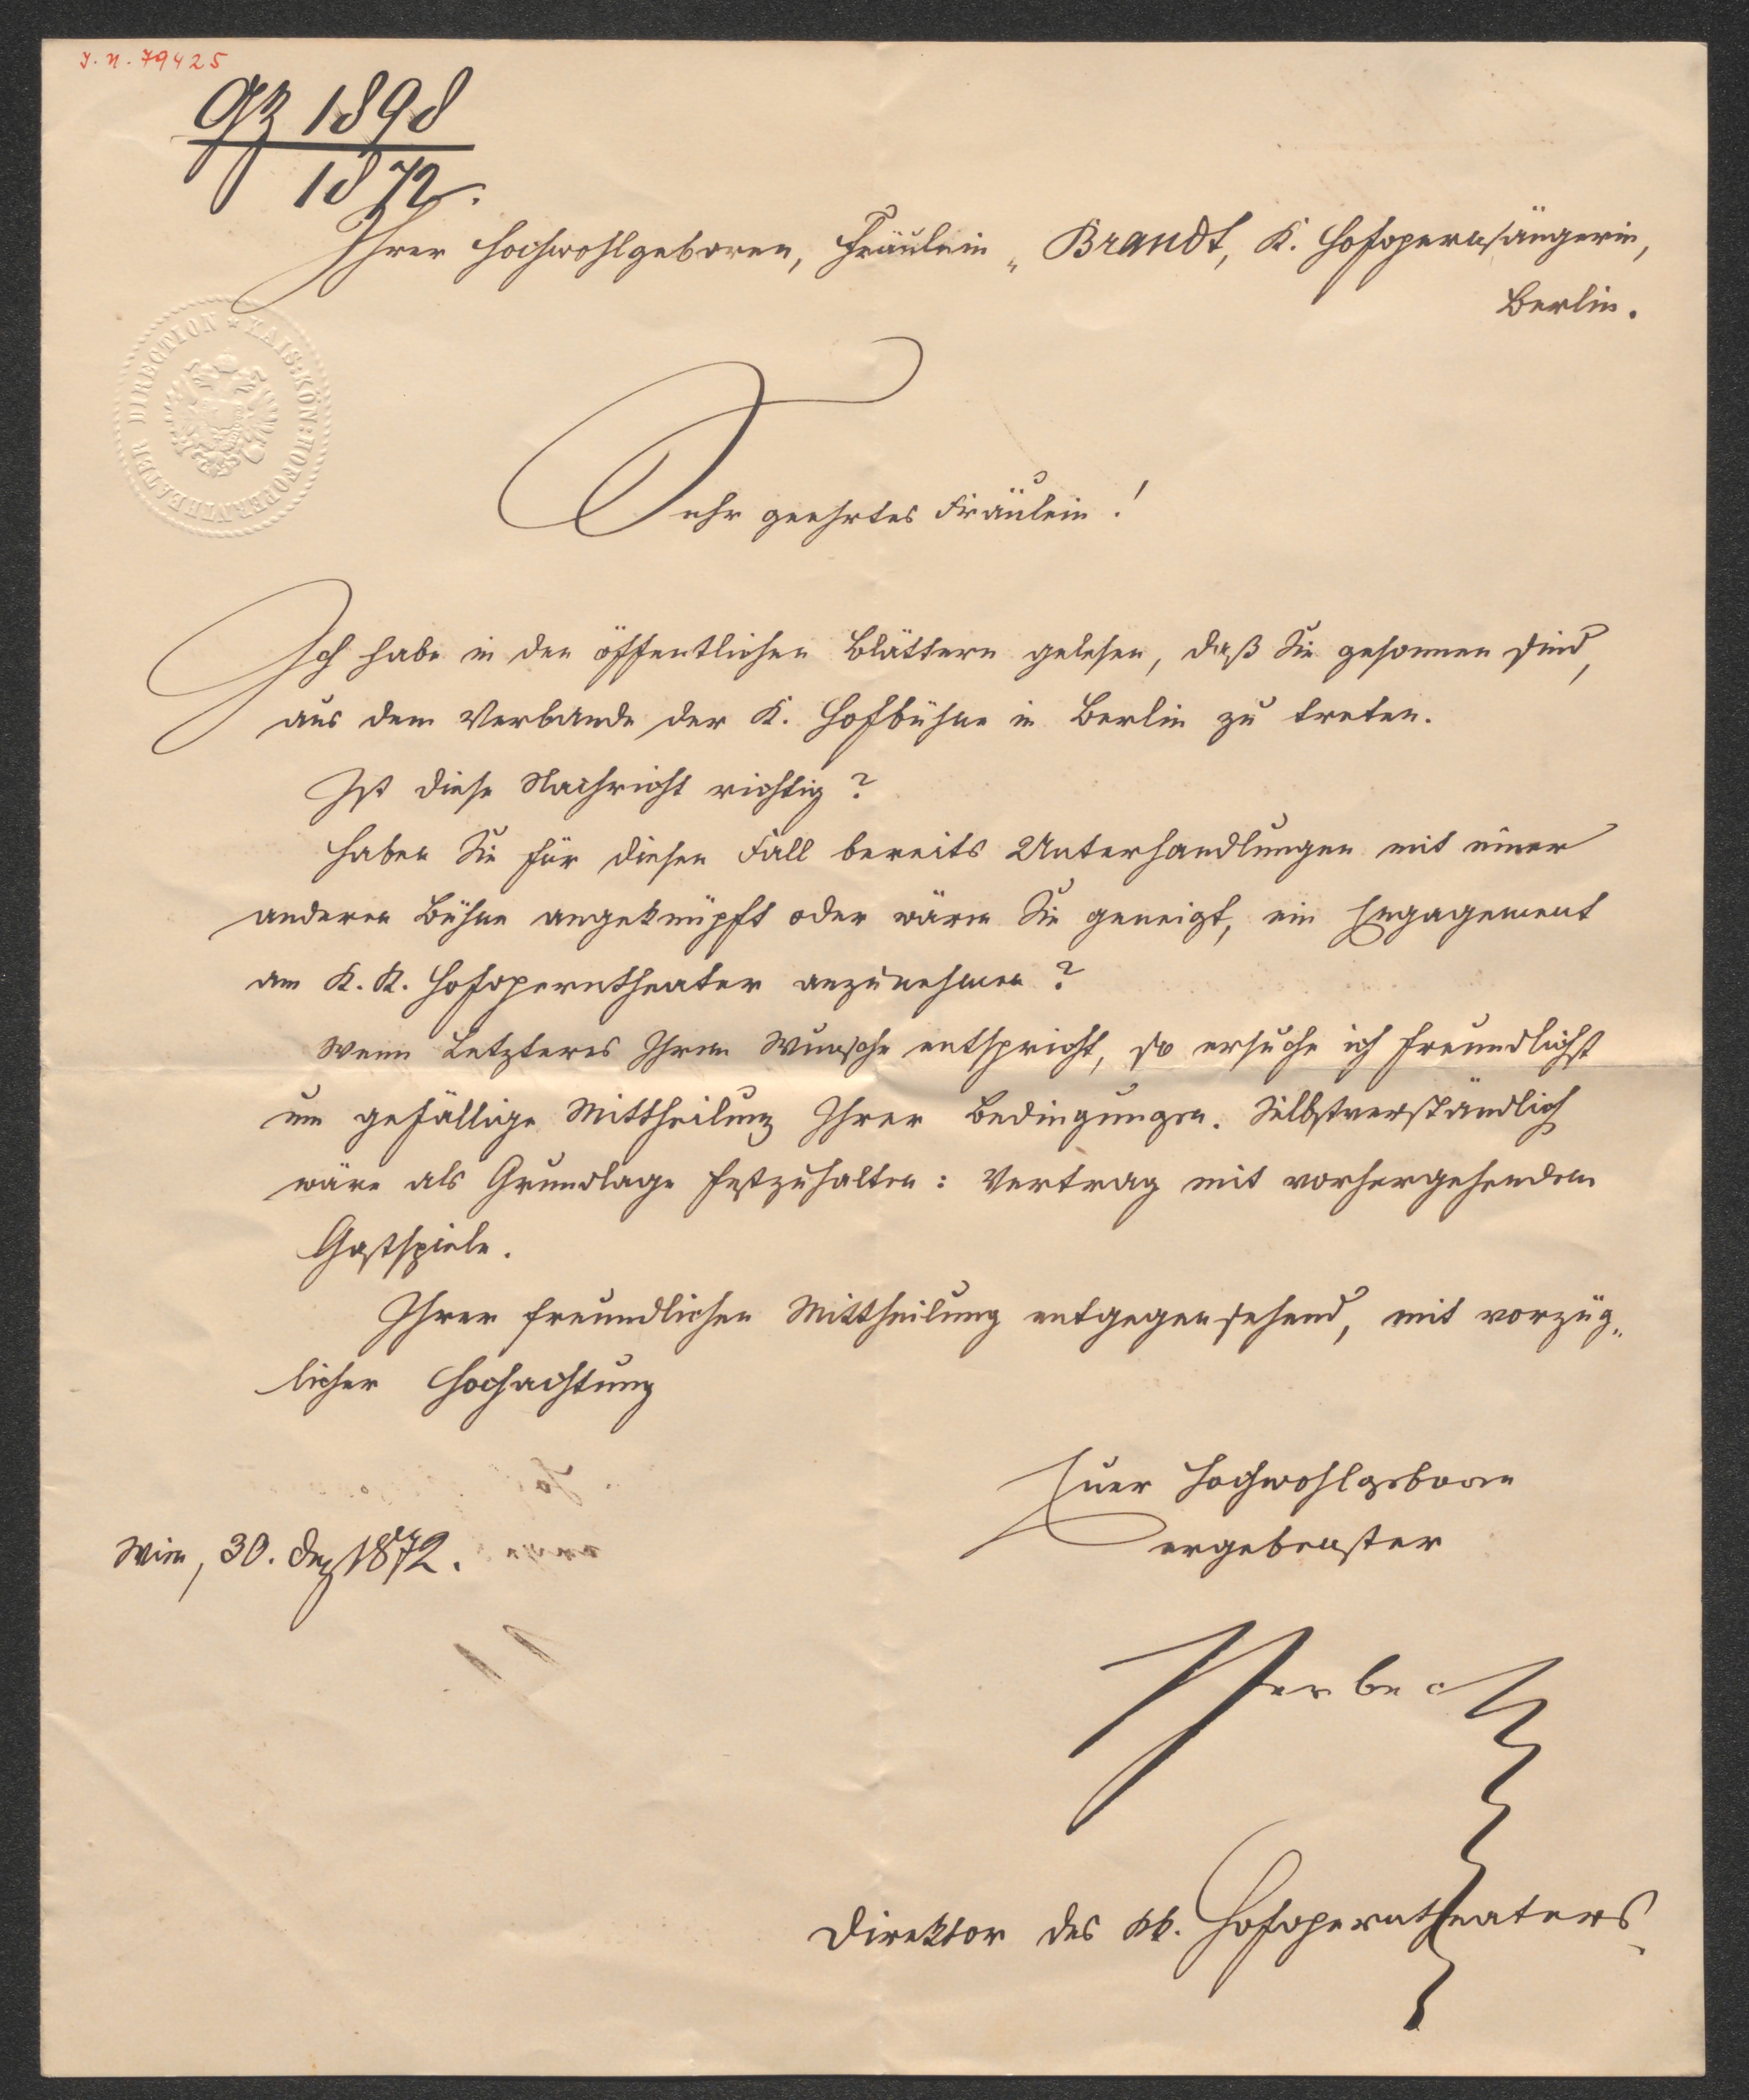 I. N. 79425
GZ 1898
1872.
Ihrer Hochwohlgeboren, Fräulein „ Brandt, K. Hofopernsängerin,
Berlin.
KAIS: KÖN: HOFOPERNTHEATER DIRECTION *
Sehr geehrtes Fräulein!
Ich habe in den öffentlichen Blättern gelesen, daß Sie gesonnen sind,
aus dem Verbande der K. Hofbühne in Berlin zu treten.
Ist diese Nachricht richtig?
Haben Sie für diesen Fall bereits Unterhandlungen mit einer
anderen Bühne angeknüpft oder wären Sie geneigt, ein Engagement
am K. K. Hofoperntheater anzunehmen?
Wenn Letzteres Ihrem Wunsche entspricht, so ersuche ich freundlichst
um gefällige Mittheilung Ihrer Bedingungen. Selbstverständlich
wäre als Grundlage festzuhalten: Vertrag mit vorhergehendem
Gastspiele.
Ihrer freundlichen Mittheilung entgegensehend, mit vorzüg„
licher Hochachtung
Euer Hochwohlgeboren
ergebenster
Wien, 30. Dez 1872.
Herbeck
Direktor des kk. Hofoperntheaters